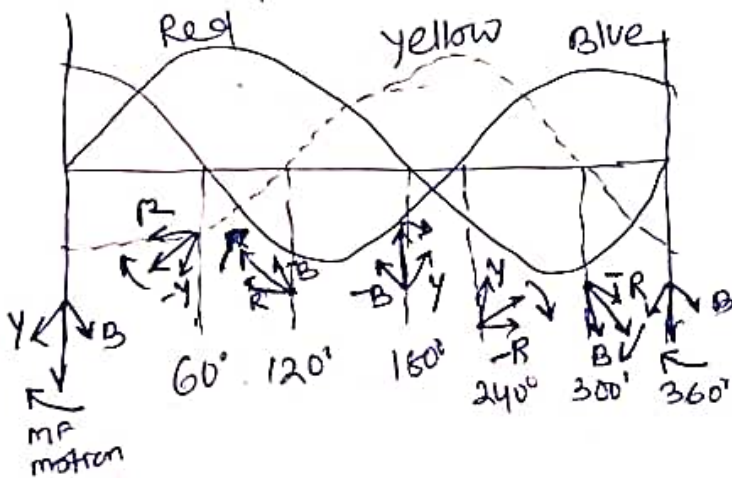 Red
Yellow
Blue
R
-Y
R
-B
-B
Y
Y
-R
-R
B
B
Y
B
60°
120°
180°
240°
300°
360°
MF
motion